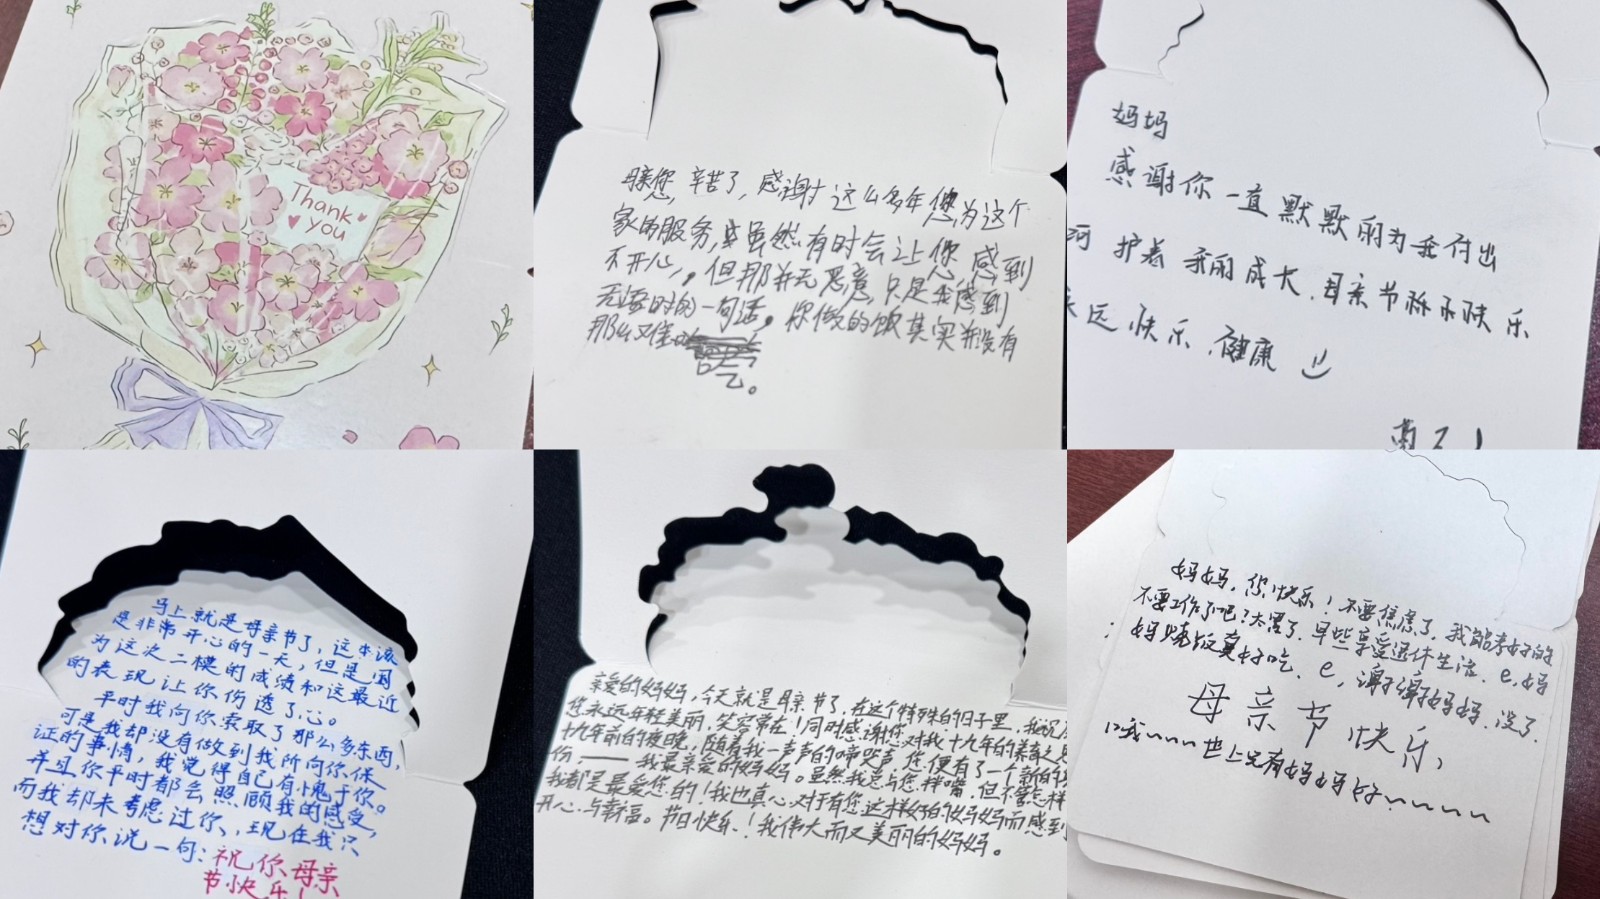 Thank
you
母亲您,辛苦了,感谢这么多年您为这个
家的服务,虽然有时会让您感到
不开心,。但那并无恶意,只是我感到
无语时的一句话。你做的饭其实并没有
那么难
吃。
妈妈
感谢你一直默默的为我付出
呵护着我的成大.母亲节祢永快乐
永远快乐.健康
马上就是母亲节了,这本该
是非常开心的一天,但是因
为这次二模的成绩和这最近
的表现让你伤透了心。
平时我向你索取了那么多东西,
可是我却没有做到我所向你保
证的事情,我觉得自己有愧于你。
并且你平时都会照顾我的感受,
而我却未考虑过你,现在我只
想对你说一句:祝你母亲
节快乐!
亲爱的妈妈,今天就是母亲节了,在这个特殊的日子里,我祝
您永远年轻美丽,笑容常在!同时感谢您对我十九年的养育之
十九年前的夜晚,随着我一声声的啼哭声,您便有了一个新的
份,——我最亲爱的妈妈。虽然我总与您拌嘴,但不管怎样
我都是最爱您的!我也真心对于有您这样好的妈妈而感到
开心与幸福。节日快乐!我伟大而又美丽的妈妈。
妈妈,你快乐!不要焦虑了,我能考好的
不要工作了吧?太累了.早些享受退休生活.e,妈
妈烧饭真好吃.e,谢谢妈妈.没了.
母亲节快乐,
世上只有妈妈好~~~~